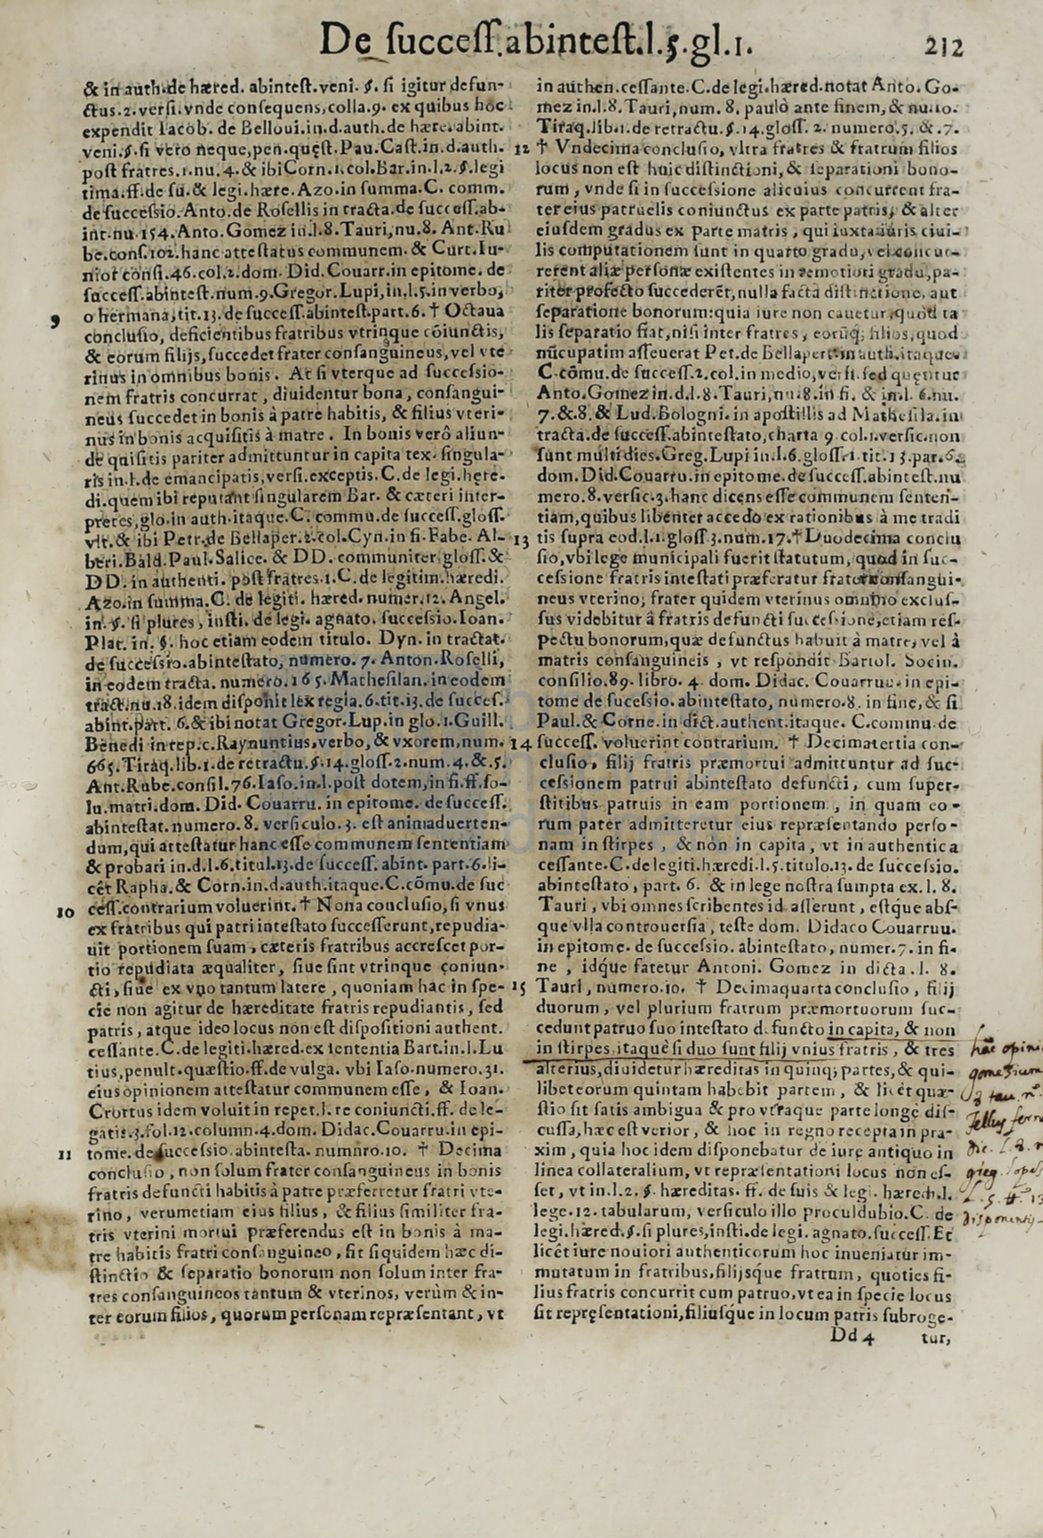 De ſucceſſ.abinteſt.l.5.gl.1. 212
& in auth.de hæred. abinteſt.veni. §. ſi igitur defun-
ctus.2.verſi.vnde conſequens,colla.9. ex quibus hoc
expendit Iacob. de Belloui.in.d.auth.de hære.abint.
veni.§.ſi vero neque,pen.quęſt.Pau.Caſt.in.d.auth.
poſt fratres.1.nu.4.& ibi Corn.1.col.Bar.in.l.2.§.legi
tima.ff.de ſu.& legi.hære.Azo.in ſumma.C. comm.
de ſucceſsio.Anto.de Roſellis in tracta.de ſucceſſ.ab-
int.nu.154.Anto.Gomez in.l.8.Tauri,nu.8. Ant.Ru
be.conſ.102.hanc atteſtatus communem.& Curt.Iu-
nior conſi.46.col.2.dom. Did.Couarr.in epitome. de
ſucceſſ.abinteſt.num.9.Gregor.Lupi,in.l.5.in verbo,
9 o hermana,tit.13.de ſucceſſ.abinteſt.part.6.† Octaua
concluſio, deficientibus fratribus vtrinque cōiunctis,
& eorum filijs,ſuccedet frater conſanguineus,vel vte
rinus in omnibus bonis. At ſi vterque ad ſucceſsio-
nem fratris concurrat, diuidentur bona, conſangui-
neus ſuccedet in bonis à patre habitis, & filius vteri-
nus in bonis acquiſitis à matre. In bonis verò aliun-
de quiſitis pariter admittuntur in capita tex. ſingula-
ris in.l.de emancipatis,verſi.exceptis.C.de legi.hęre.
di.quem ibi reputant ſingularem Bar. & cæteri inter-
pretes,glo.in auth.itaque.C. commu.de ſucceſſ.gloſſ.
vlt.& ibi Petr.de Bellaper.2.col.Cyn.in fi.Fabe. Al-
beri.Bald.Paul.Salice. & DD. communiter.gloſſ.&
DD. in authenti. poſt fratres.1.C.de legitim.hæredi.
Azo.in ſumma.C. de legiti. hæred.numer.12. Angel.
in.§. ſi plures, inſti. de legi. agnato. ſucceſsio.Ioan.
Plat. in. §. hoc etiam eodem titulo. Dyn. in tractat.
de ſucceſsio.abinteſtato, numero. 7. Anton.Roſelli,
in eodem tracta. numero. 165.Matheſilan. in eodem
tract.nu.18.idem diſponit lex regia.6.tit.13.de ſucceſ.
abint.part. 6.& ibi notat Gregor.Lup.in glo.1.Guill.
Benedi in rep.c.Raynuntius,verbo,& vxorem,num.
665.Tiraq.lib.1.de retractu.§.14.gloſſ.2.num.4.&.5.
Ant.Rube.conſil.76.Iaſo.in.l.poſt dotem,in fi.ff.ſo-
lu.matri.dom. Did. Couarru. in epitome. de ſucceſſ.
abinteſtat.numero.8. verſiculo.3. eſt animaduerten-
dum,qui atteſtatur hanc eſſe communem ſententiam
& probari in.d.l.6.titul.13.de ſucceſſ. abint. part.6.li-
cét Rapha.& Corn.in.d.auth.itaque.C.cōmu.de ſuc
10 ceſſ.contrarium voluerint.† Nona concluſio,ſi vnus
ex fratribus qui patri inteſtato ſucceſſerunt,repudia-
uit portionem ſuam, cæteris fratribus accreſcet por-
tio repudiata æqualiter, ſiue ſint vtrinque coniun-
cti, ſiue ex vno tantum latere, quoniam hac in ſpe-
cie non agitur de hæreditate fratris repudiantis, ſed
patris, atque ideo locus non eſt diſpoſitioni authent.
ceſſante.C.de legiti.hæred.ex ſententia Bart.in.l.Lu
tius,penult.quæſtio.ff.de vulga. vbi Iaſo.numero.31.
eius opinionem atteſtatur communem eſſe, & Ioan.
Crottus idem voluit in repet.l.re coniuncti.ff. de le-
gatis.3.fol.12.column.4.dom. Didac.Couarru.in epi-
11 tome. de ſucceſsio.abinteſta. numnro.10. † Decima
concluſio, non ſolum frater conſanguineus in bonis
fratris defuncti habitis à patre præferretur fratri vte-
rino, verumetiam eius filius, & filius ſimiliter fra-
tris vterini mortui præferendus eſt in bonis à ma-
tre habitis fratri conſanguineo, ſit ſiquidem hæc di-
ſtinctio & ſeparatio bonorum non ſolum inter fra-
tres conſanguineos tantum & vterinos, verùm & in-
ter eorum filios, quorum perſonam repræſentant, vt
in authen.ceſſante.C.de legi.hæred.notat Anto. Go-
mez in.l.8.Tauri,num. 8. paulò ante finem,& nu.10.
Tiraq.lib.1.de retractu.§.14.gloſſ. 2. numero.5. &.7.
12 † Vndecima concluſio, vltra fratres & fratrum filios
locus non eſt huic diſtinctioni, & ſeparationi bono-
rum, vnde ſi in ſucceſsione alicuius concurrent fra-
ter eius patruelis coniunctus ex parte patris, & alter
eiuſdem gradus ex parte matris, qui iuxta iuris ciui-
lis computationem ſunt in quarto gradu, vel concur-
rerent aliæ perſonæ exiſtentes in remotiori gradu,pa-
riter profecto ſuccederēt, nulla facta diſtinctione, aut
ſeparatione bonorum:quia iure non cauetur,quod ta
lis ſeparatio fiat,niſi inter fratres, eorūq; filios,quod
nūcupatim aſſeuerat Pet.de Bellapert.in auth.itaque.
C.cōmu.de ſucceſſ.2.col.in medio,verſi.ſed quęritur
Anto.Gomez in.d.l.8.Tauri,nu.8.in fi. & in.l. 6.nu.
7.&.8.& Lud.Bologni.in apoſtillis ad Matheſila.in
tracta.de ſucceſſ.abinteſtato,charta 9.col.1.verſic.non
ſunt multi dies.Greg.Lupi in.l.6.gloſſ.1.tit.13.par.6.
dom.Did.Couarru.in epitome.de ſucceſſ.abinteſt.nu
mero.8.verſic.3.hanc dicens eſſe communem ſenten-
tiam,quibus libenter accedo ex rationibus à me tradi
13 tis ſupra eod.l.1.gloſſ.3.num.17.† Duodecima conclu
ſio,vbi lege municipali fuerit ſtatutum, quod in ſuc-
ceſsione fratris inteſtati præferatur frater conſangui-
neus vterino, frater quidem vterinus omnino excluſ-
ſus videbitur à fratris defuncti ſucceſsione,etiam reſ-
pectu bonorum,quæ defunctus habuit à matre, vel à
matris conſanguineis, vt reſpondit Bartol. Socin.
conſilio.89. libro. 4. dom. Didac. Couarruu. in epi-
tome de ſuceſsio. abinteſtato, numero.8. in fine, & ſi
Paul.& Corne.in dict.authent.itaque. C.commu.de
14 ſucceſſ. voluerint contrarium. † Decimatertia con-
cluſio, filij fratris præmortui admittuntur ad ſuc-
ceſsionem patrui abinteſtato defuncti, cum ſuper-
ſtitibus patruis in eam portionem, in quam eo-
rum pater admitteretur eius repræſentando perſo-
nam in ſtirpes, & non in capita, vt in authentica
ceſſante.C.de legiti.hæredi.l.5.titulo.13.de ſucceſsio.
abinteſtato, part. 6. & in lege noſtra ſumpta ex.l. 8.
Tauri, vbi omnes ſcribentes id aſſerunt, eſtque abſ-
que vlla controuerſia, teſte dom. Didaco Couarruu.
in epitome. de ſucceſsio. abinteſtato, numer.7. in fi-
ne, idque fatetur Antoni. Gomez in dicta.l. 8.
15 Tauri, numero.10. † Decimaquarta concluſio, filij
duorum, vel plurium fratrum præmortuorum ſuc-
cedunt patruo ſuo inteſtato defuncto in capita, & non
in ſtirpes, itaque ſi duo ſunt filij vnius fratris, & tres
alterius,diuidetur hæreditas in quinq; partes,& qui-
libet eorum quintam habebit partem, & licèt quæ-
ſtio ſit ſatis ambigua & pro vtraque parte longè diſ-
cuſſa,hæc eſt verior, & hoc in regno recepta in pra-
xim, quia hoc idem diſponebatur de iure antiquo in
linea collateralium, vt repræſentationi locus non eſ-
ſet, vt in.l.2. §. hæreditas. ff. de ſuis & legi. hæredi.l.
lege.12.tabularum, verſiculo illo proculdubio.C. de
legi.hæred.§.ſi plures,inſti.de legi. agnato.ſucceſſ.Et
licèt iure nouiori authenticorum hoc inueniatur im-
mutatum in fratribus,filijſque fratrum, quoties fi-
lius fratris concurrit cum patruo,vt ea in ſpecie locus
ſit repręſentationi,filiuſque in locum patris ſubroge-
Dd 4 tur,